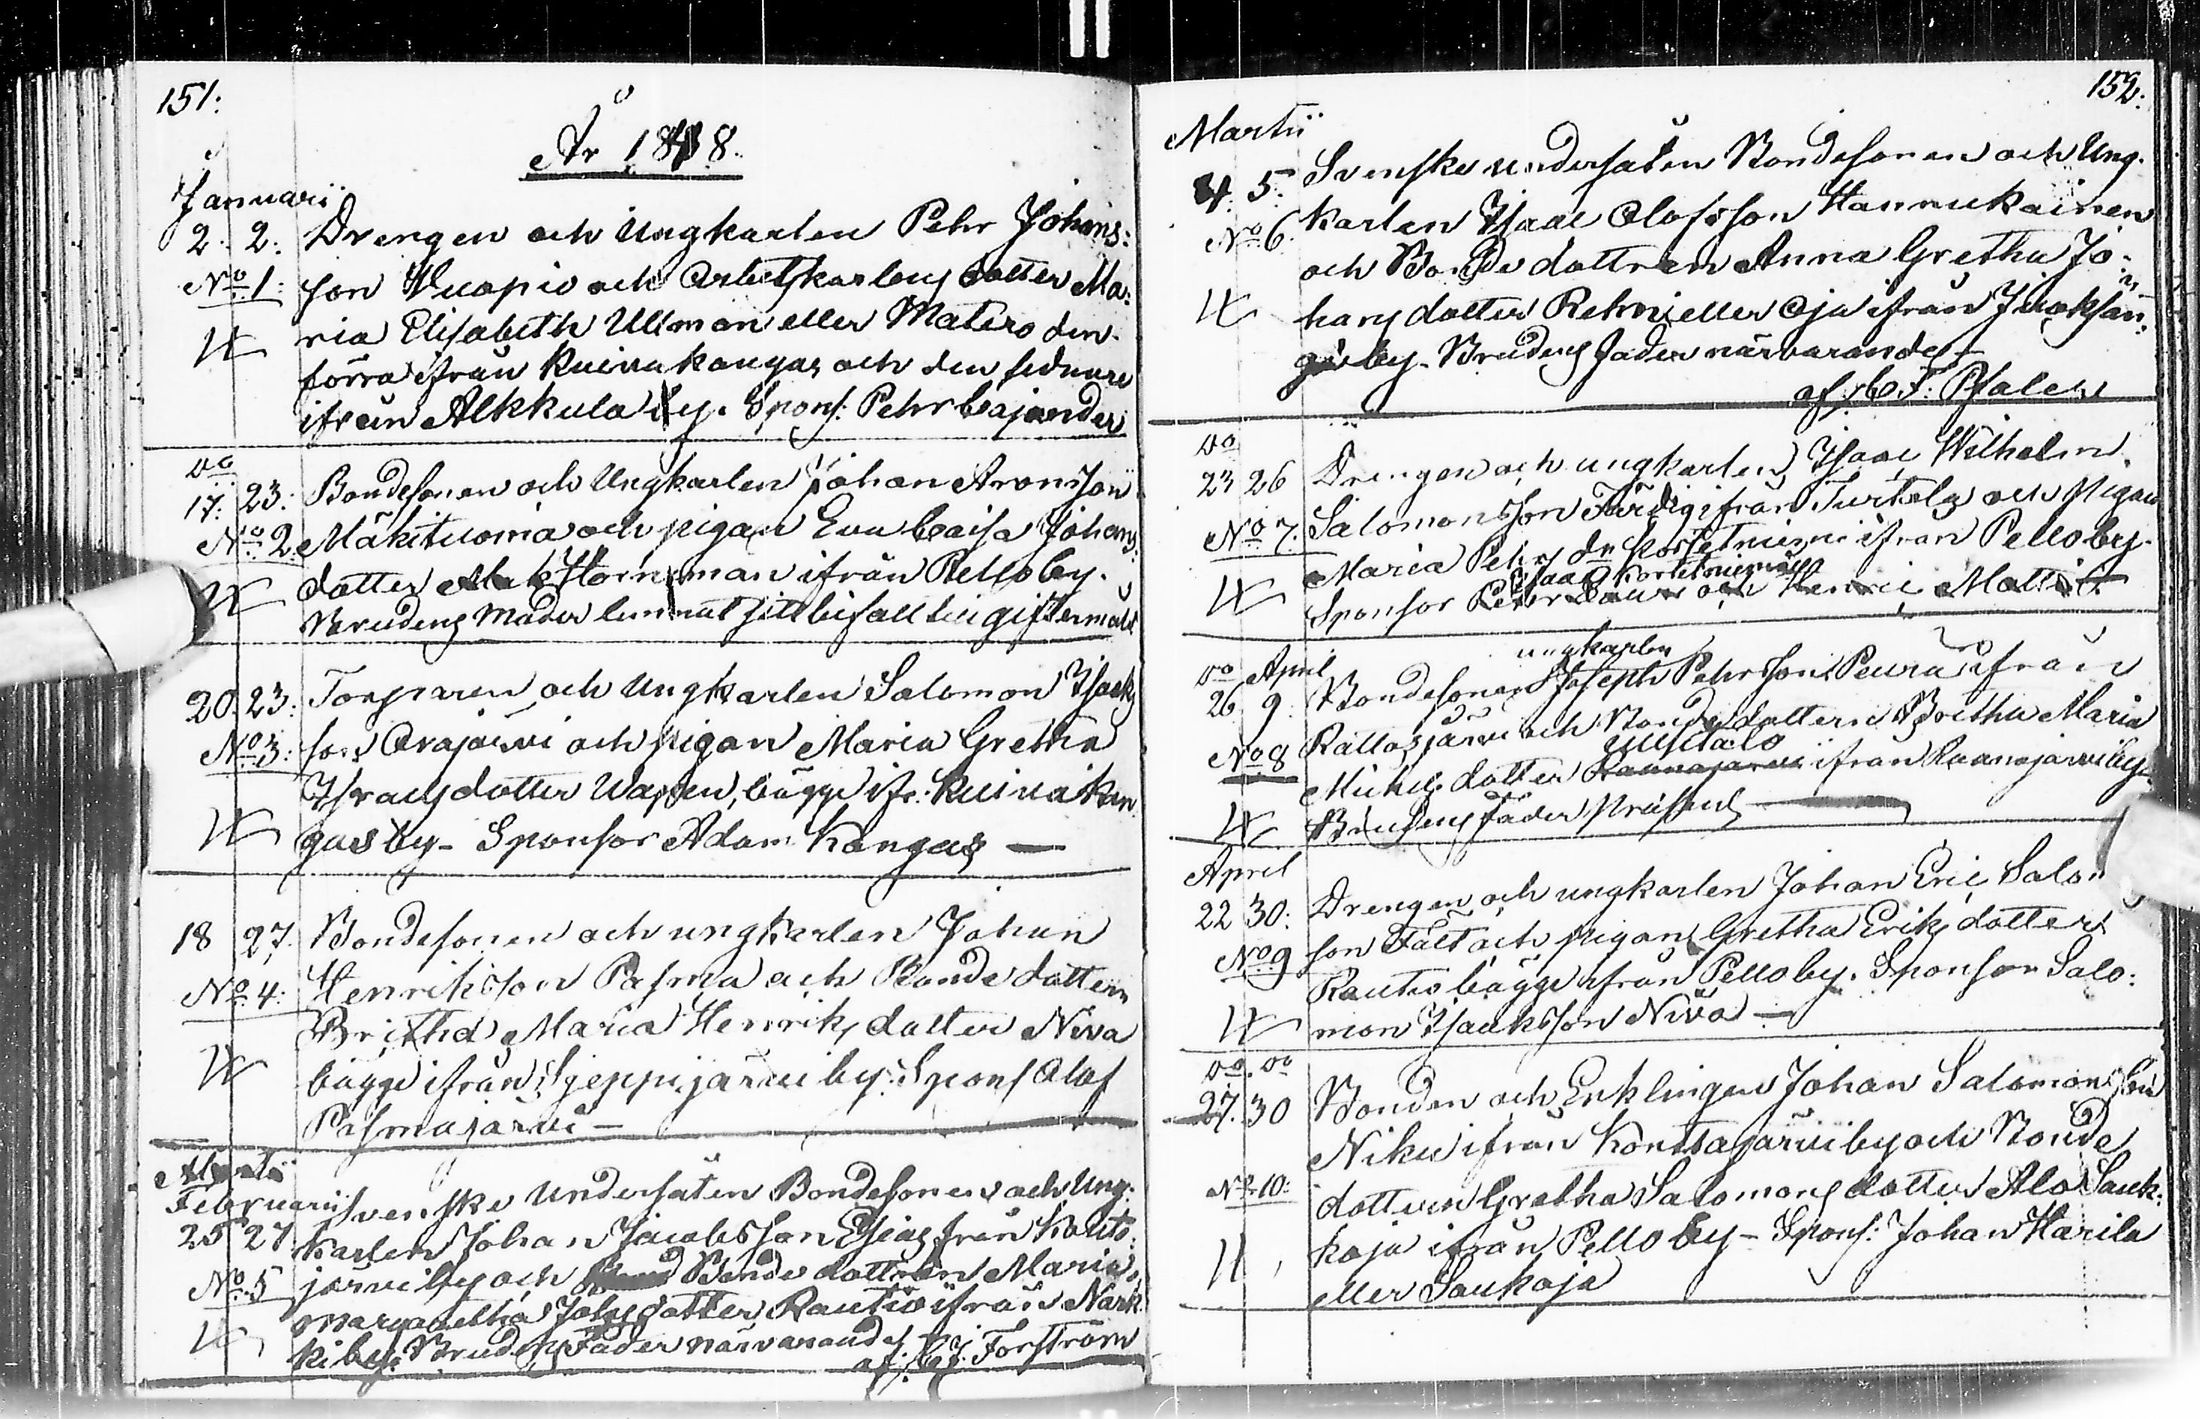 151:
År 1848.
Januarii
2. 2. Drengen och Ungkarlen Pehr Johans:
No 1: son Vuopio och Arbetskarlens dotter Ma:
ria Elisabeth Ullman eller Matero den
förra ifrån Kuivakangas och den sednare
ifrån Alkkula by. Spons: Pehr Cajander
do
17. 23: Bondesonen och Ungkarlen Johan Aronsson
No 2. Mäkituomia och pigan Eva Caisa Johans
dotter Hornman ifrån Pello by.
Brudens Moder lemnat sitt bifall till giftermålet
20. 23: Torparen och Ungkarlen Salomon Isacks
No 3: son Orajärvi och pigan Maria Gretha
Israelsdotter Wapsen, bägge ifr: Kuivakan
gas by – Sponsor Adam Kangas —
18 27. Bondesonen och ungkarlen Johan
No 4: Henriksson Pasma och Bonde dottern
Britha Maria Henriks dotter Niva
bägge ifrån Sjeppijärvi by: Spons Olof
Pasmajärvi –
Februarii Svenske Undersåten Bondesonen och Ung:
25 27 karlen Johan Jacobsson Esias från Kouto
No 5 järvi by och Bonde dottren Maria
Margaretha Johs dotter Rautio ifrån Nark
ki by. Brudens Fader närvarande
af: C: J: Forsström
152:
Martii
4. 5. Svenske undersåten Bondesonen och Ung
No 6. karlen Isaac Olofsson Hannukainen
och Bonde dottren Anna Gretha Jo:
hans dotter Rehn eller Oja ifrån Juoksan
gi by. Brudens Fader närvarande –
af C: F: Pfaler
do
23 26 Drengen och ungkarlen Isaac Wilhelm
No 7. Salomonsson Färdig ifrån Turtola och Pigan
Maria Pehrs dr Kortetniemi ifrån Pello by.
Isaac Kortetniemi
Sponsor och Henric
do April ungkarlen
26 9. Bondesonen Joseph Pehrsson Peura ifrån
No 8 Rattosjärvi och Bonde dottern Britha Maria
Uusitalo
Michels dotter Raanojärvi ifrån Raanojärvi by
Brudens Fader Præsent —
April
22 30: Drengen och ungkarlen Johan Eric Salom
No 9 son Fält och pigan Gretha Eriks dotter
Rautio bägge ifrån Pello by. Sponsor Salo:
mon Isacksson Niva —
do. do
27. 30 Bonden och Enklingen Johan Salomonsson
Niku ifrån Konttajärvi by och Bonde
No 10: dottren Gretha Salomons dotter Alo Sauk:
koja ifrån Pello by – Spons: Johan Harila
eller Saukoja